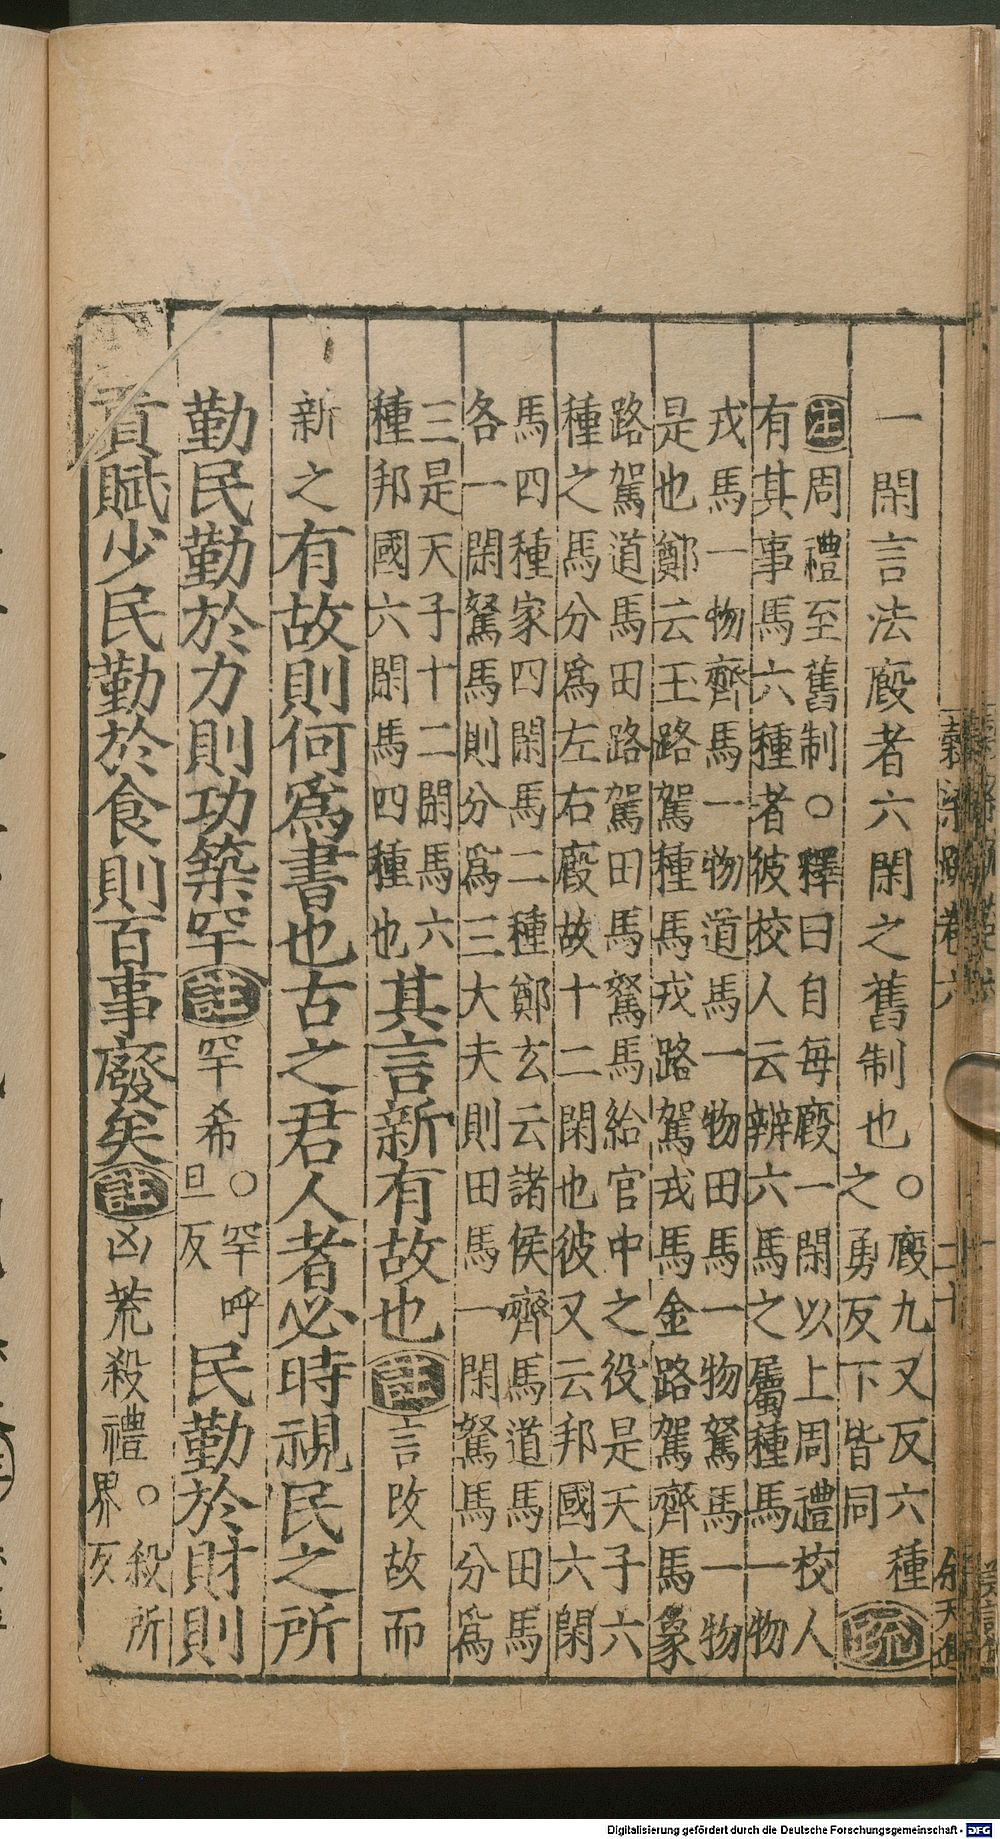 一閑言法廄者六閑之舊制也。廄九又反六種
之勇反下皆同疏
注周禮至舊制○釋曰自每廄一閑以上周禮校人
有其事馬六種者彼校人云辨六馬之屬種馬一物
戎馬一物齊馬一物道馬一物田馬一物駑馬一物
是也鄭云玉路駕種馬戎路駕戎馬金路駕齊馬象
路駕道馬田路駕田馬駑馬給官中之役是天子六
種之馬分爲左右廄故十二閑也彼又云邦國六閑
馬四種家四閑馬二種鄭玄云諸侯齊馬道馬田馬
各一閑駑馬則分爲三大夫則田馬一閑駑馬分爲
三是天子十二閑馬六
種邦國六閑馬四種也其言新有故也註言改故而
新之有故則何爲書也古之君人者必時視民之所
勤民勤於力則功築罕註罕希○罕呼旦反民勤於財則
貢賦少民勤於食則百事廢矣註凶荒殺禮○殺所界反
卷六
二十
余天進
Digitalisierung gefördert durch die Deutsche Forschungsgemeinschaft - DFG